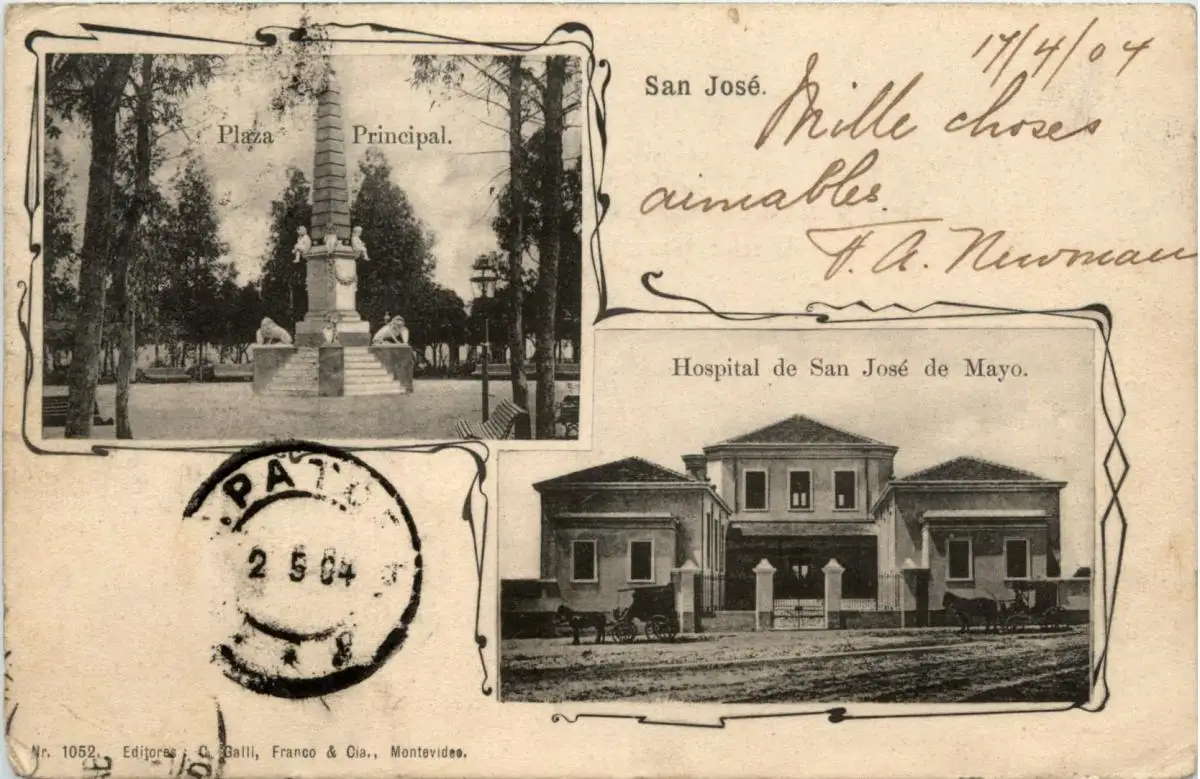 17/4/04
San José.
Mille choses
aimables.
F. A. Newman
Plaza Principal.
Hospital de San José de Mayo.
2 5 04
Nr. 1052. Editores: C. Galli, Franco & Cia., Montevideo.